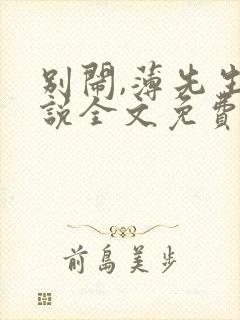 別鬧,薄先生
說全文免費
前島美步